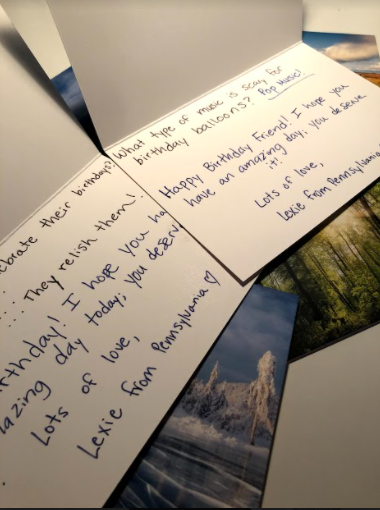 What type of music is scary for
birthday balloons? Pop Music!
Happy Birthday Friend! I hope you
have an amazing day; you deserve
it!
Lots of love,
Lexie from Pennsylvania
lebrate their birthdays?
... They relish them!
irthday! I hope you ha
azing day today; you deserv
Lots of love,
Lexie from Pennsylvania ♡